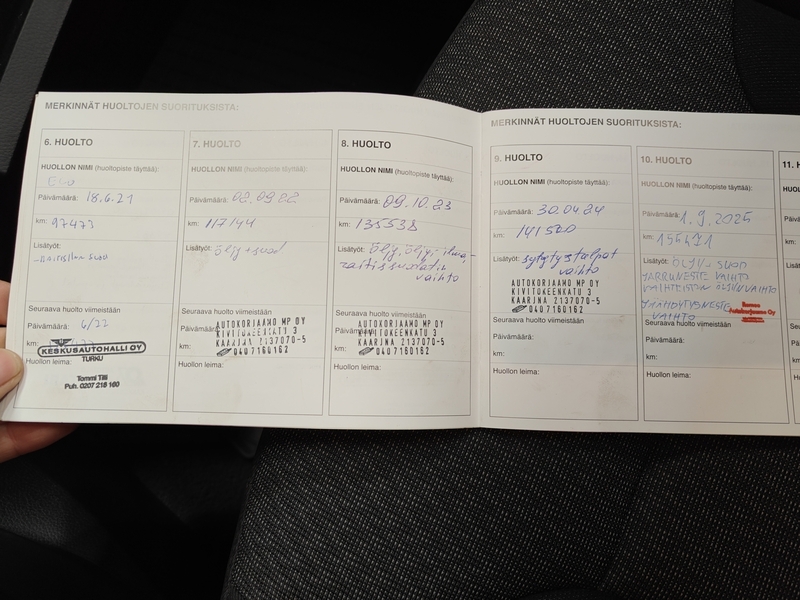 MERKINNÄT HUOLTOJEN SUORITUKSISTA:
6. HUOLTO
HUOLLON NIMI (huoltopiste täyttää):
Päivämäärä: 18.6.21
km: 97473
Lisätyöt:
Seuraava huolto viimeistään
Päivämäärä: 6/22
km:
KESKUSAUTOHALLI OY
TURKU
Huollon leima:
Tommi Tilli
Puh. 0207 218 160
7. HUOLTO
HUOLLON NIMI (huoltopiste täyttää):
Päivämäärä: 02.09.22
km: 117144
Lisätyöt: öljy + suod
Seuraava huolto viimeistään
Päivämäärä:
km:
AUTOKORJAAMO MP OY
KIVITOKEENKATU 3
KAARINA Z137070-5
0407160162
Huollon leima:
8. HUOLTO
HUOLLON NIMI (huoltopiste täyttää):
Päivämäärä: 09.10.23
km: 135538
Lisätyöt: öljy, öljy-, ilma,-
raitissuodatin
vaihto
Seuraava huolto viimeistään
Päivämäärä:
km:
AUTOKORJAAMO MP OY
KIVITOKEENKATU 3
KAARINA Z137070-5
0407160162
Huollon leima:
MERKINNÄT HUOLTOJEN SUORITUKSISTA:
9. HUOLTO
HUOLLON NIMI (huoltopiste täyttää):
Päivämäärä: 30.04.24
km: 141500
Lisätyöt: sytytystulpat
vaihto
AUTOKORJAAMO MP OY
KIVITOKEENKATU 3
KAARINA Z137070-5
0407160162
Seuraava huolto viimeistään
Päivämäärä:
km:
Huollon leima:
10. HUOLTO
HUOLLON NIMI (huoltopiste täyttää):
Päivämäärä: 1.9.2025
km:
Lisätyöt: ÖLJY + SUOD
JARRUNESTE VAIHTO
VAIHTEISTON ÖLJYNVAIHTO
JÄÄHDYTYSNESTE
VAIHTO
Autokorjaamo Oy
Seuraava huolto viimeistään
Päivämäärä:
km:
Huollon leima:
11.